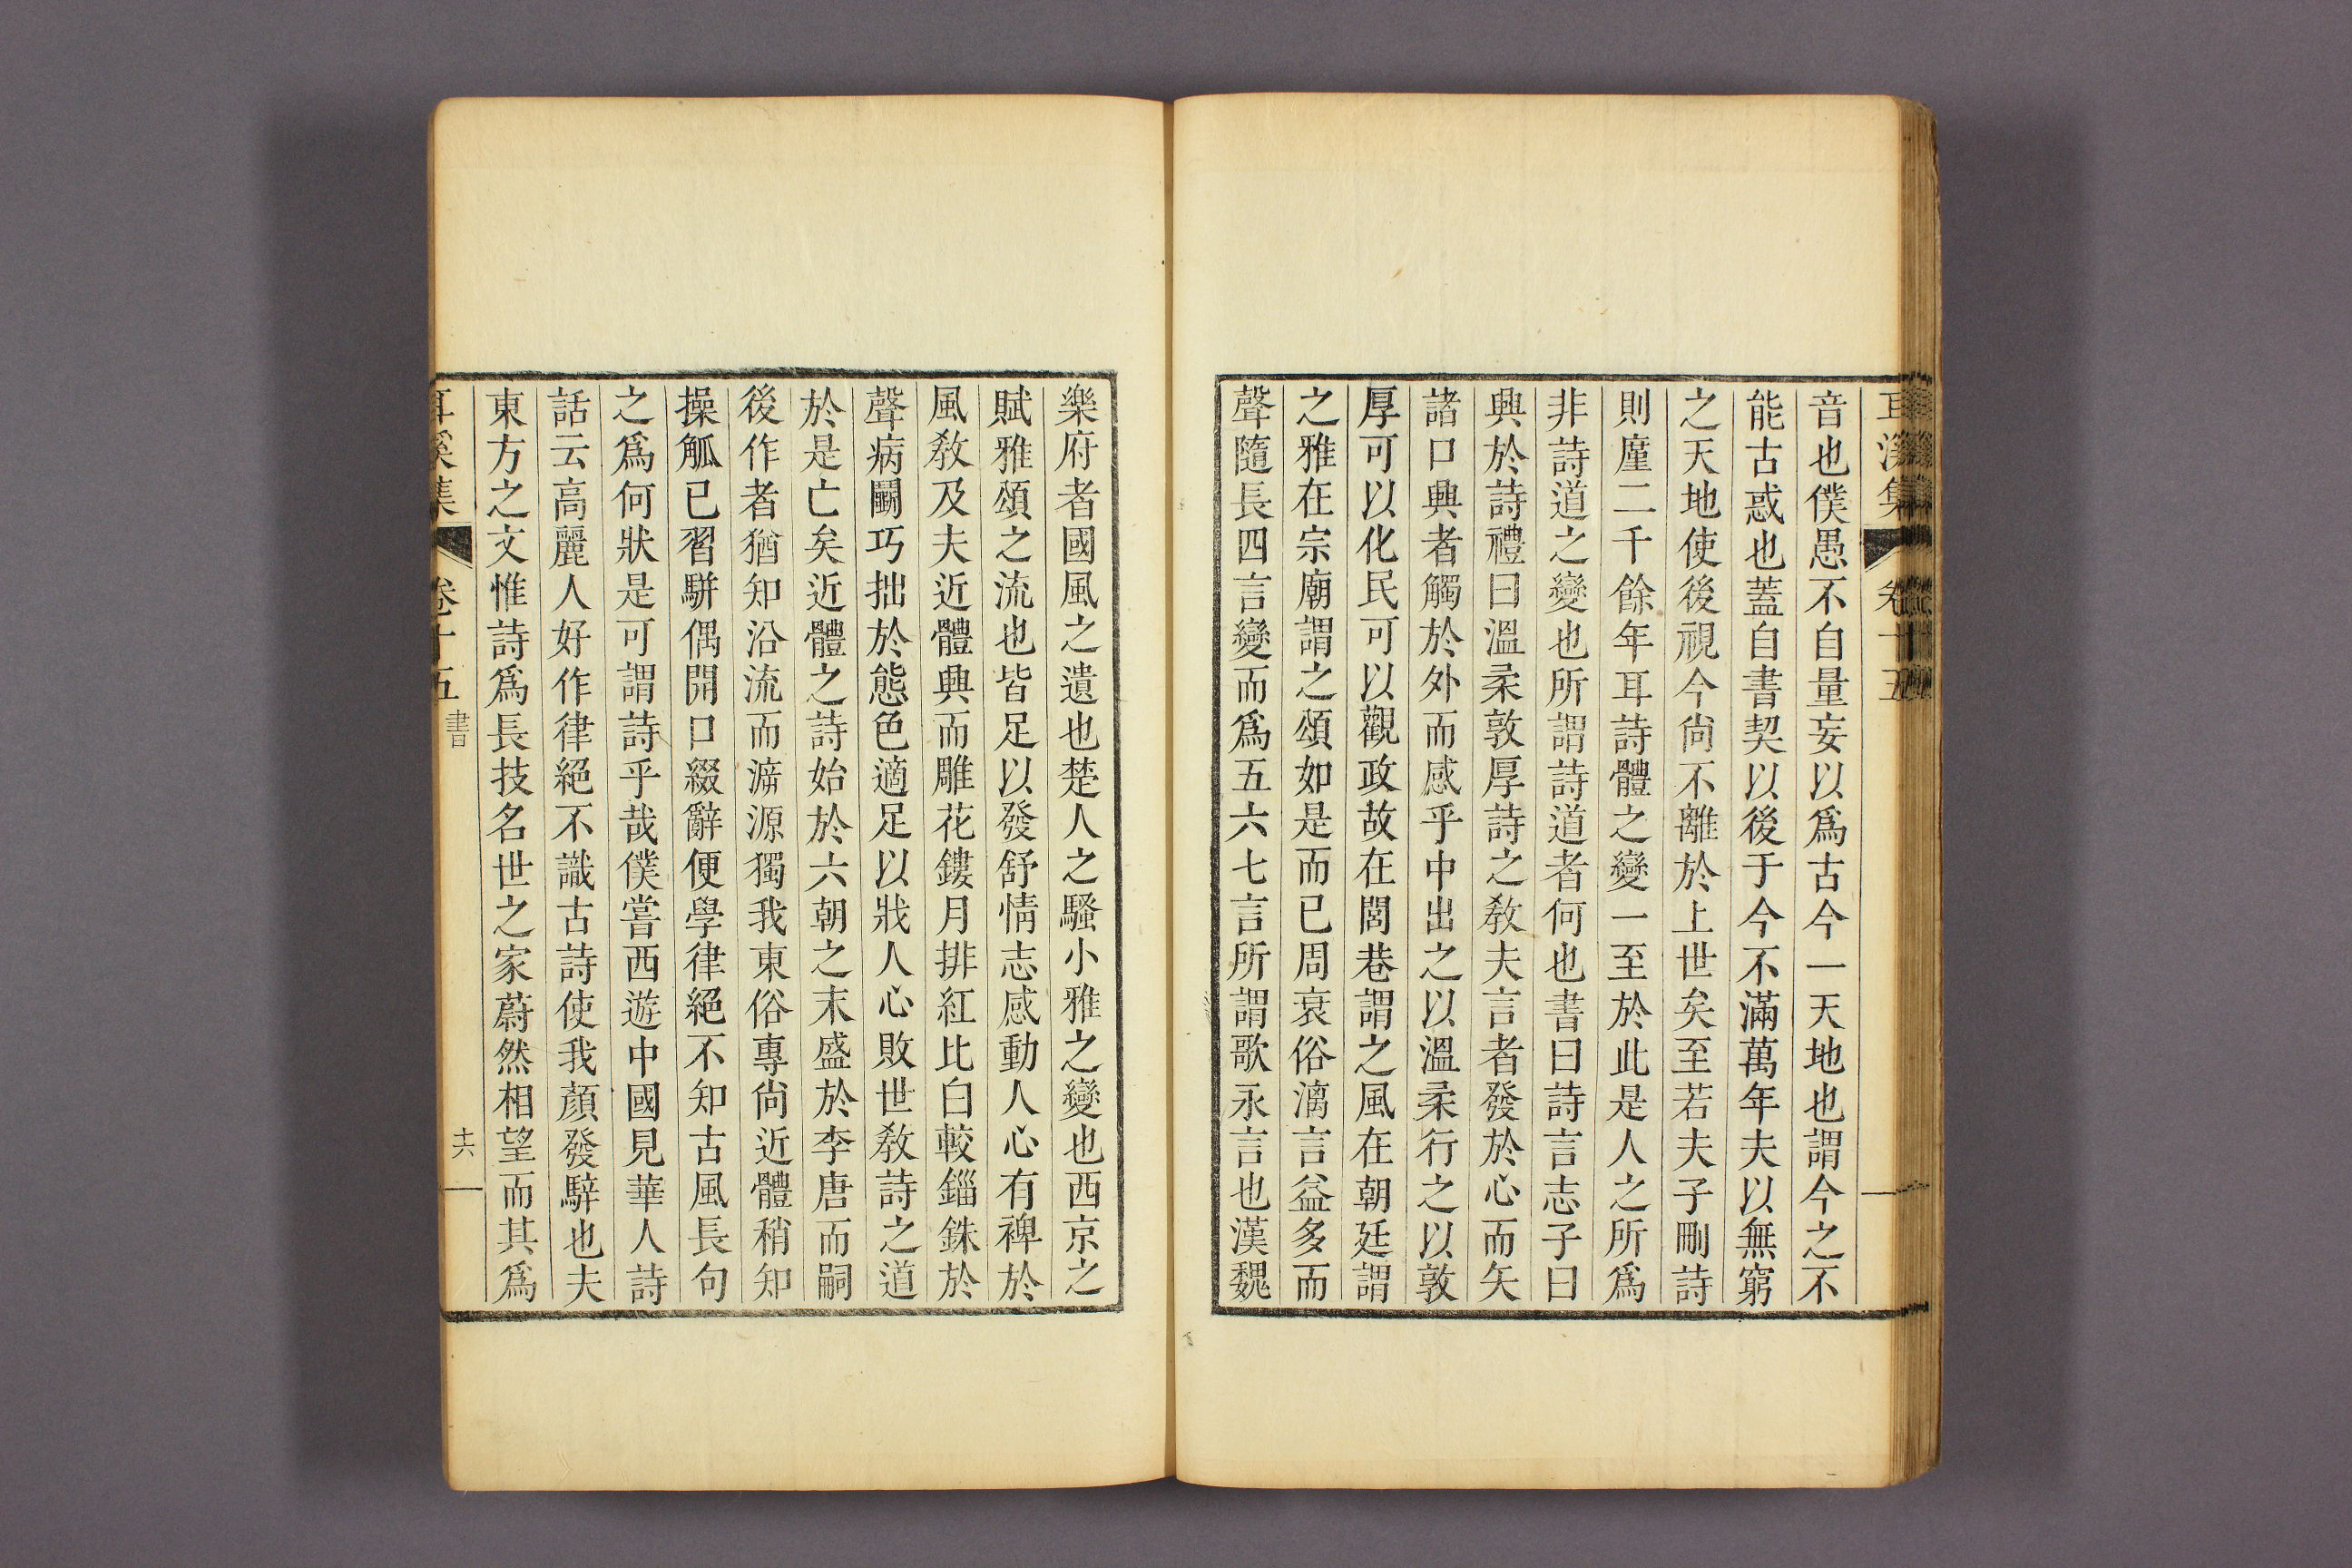 耳溪集 卷十五
音也僕愚不自量妄以爲古今一天地也謂今之不
能古惑也蓋自書契以後于今不滿萬年夫以無窮
之天地使後視今尙不離於上世矣至若夫子刪詩
則廑二千餘年耳詩體之變一至於此是人之所爲
非詩道之變也所謂詩道者何也書曰詩言志子曰
興於詩禮曰溫柔敦厚詩之敎夫言者發於心而矢
諸口興者觸於外而感乎中出之以溫柔行之以敦
厚可以化民可以觀政故在閭巷謂之風在朝廷謂
之雅在宗廟謂之頌如是而已周衰俗漓言益多而
聲隨長四言變而爲五六七言所謂歌永言也漢魏
樂府者國風之遺也楚人之騷小雅之變也西京之
賦雅頌之流也皆足以發舒情志感動人心有裨於
風敎及夫近體興而雕花鏤月排紅比白較錙銖於
聲病鬭巧拙於態色適足以戕人心敗世敎詩之道
於是亡矣近體之詩始於六朝之末盛於李唐而嗣
後作者猶知沿流而泝源獨我東俗專尙近體稍知
操觚已習騈偶開口綴辭便學律絕不知古風長句
之爲何狀是可謂詩乎哉僕嘗西遊中國見華人詩
話云高麗人好作律絕不識古詩使我顏發騂也夫
東方之文惟詩爲長技名世之家蔚然相望而其爲
耳溪集 卷十五 書 十六